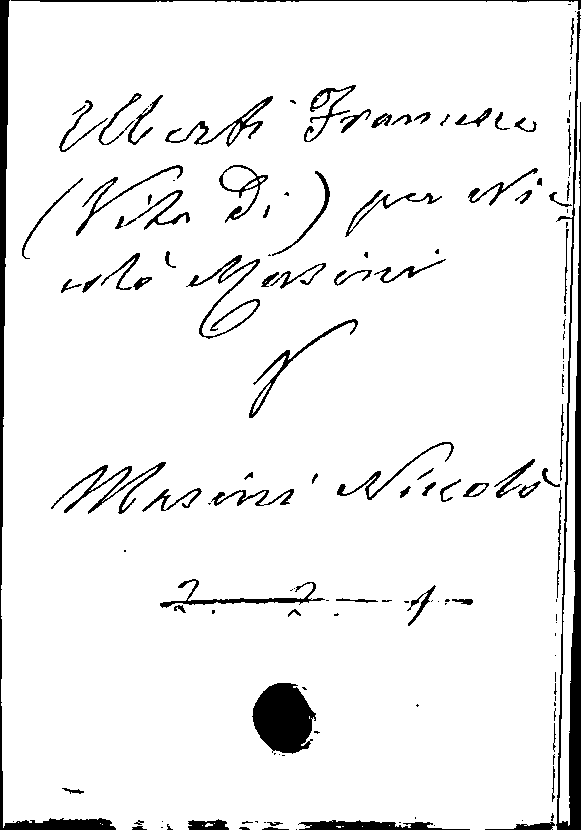 Uberti Francesco
(Vita Di) per Ni-
colò Masini
V
Masini Nicolò